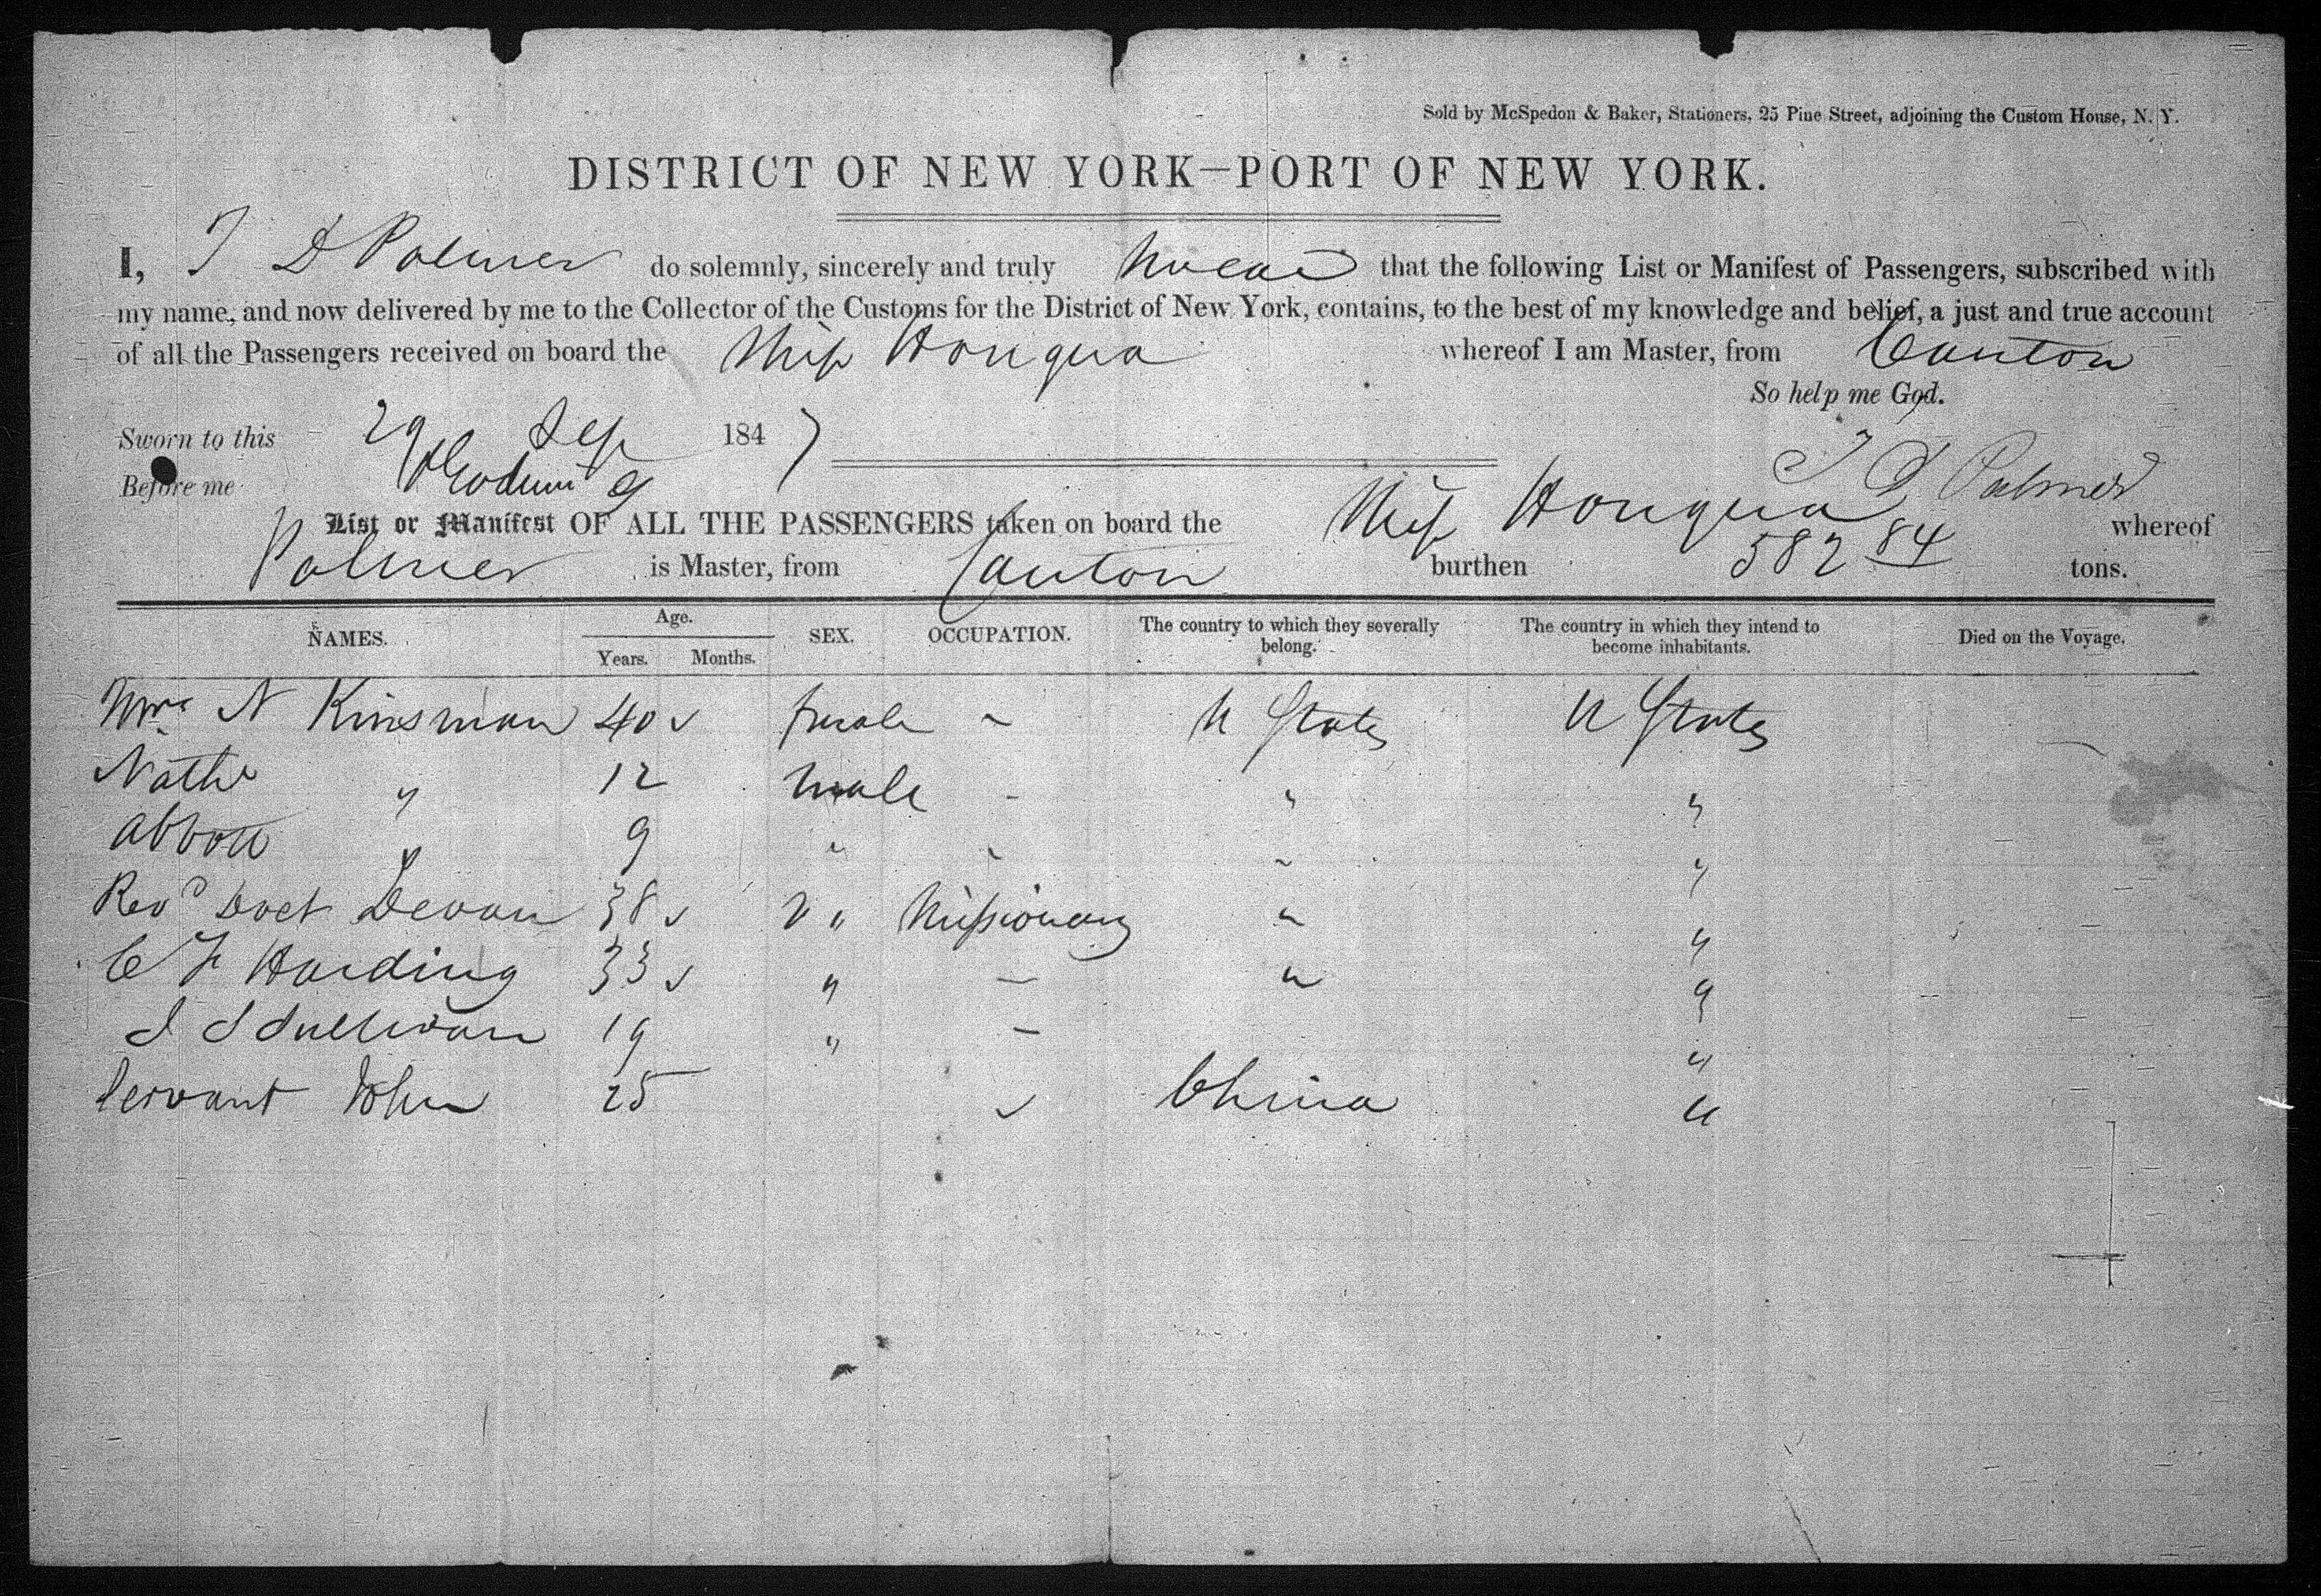 Sold by McSpedon & Baker, Stationers, 25 Pine Street, adjoining the Custom House, N. Y.
DISTRICT OF NEW YORK—PORT OF NEW YORK.
I, T D Palmer do solemnly, sincerely and truly swear that the following List or Manifest of Passengers, subscribed with
my name, and now delivered by me to the Collector of the Customs for the District of New York, contains, to the best of my knowledge and belief, a just and true account
of all the Passengers received on board the Ship Honqua whereof I am Master, from Canton
So help me God.
Sworn to this 29 Sep 1847
T D Palmer
Before me
List or Manifest OF ALL THE PASSENGERS taken on board the Ship Honqua whereof
Palmer is Master, from Canton burthen 582 84 tons.
NAMES. Age. Years. Months. SEX. OCCUPATION. The country to which they severally belong. The country in which they intend to become inhabitants. Died on the Voyage.
Mrs N Kinsman 40 female - U States U States
Nathl " 12 male - " "
Abbott " 9 " - " "
Revd Doct Devan 38 " Missionary " "
C F Harding 33 " - " "
J S Sullivan 19 " - "
Servant John 25 China "